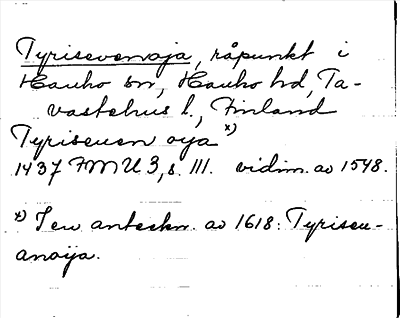 Tyrisevanoja, råpunkt i
Hauho sn, Hauho hd, Ta-
vastehus l., Finland
Tyriseuen oya x)
1437 FMU 3, s. 111. vidim. av 1548.
x) I en anteckn. av 1618: Tyriseu-
anoija.